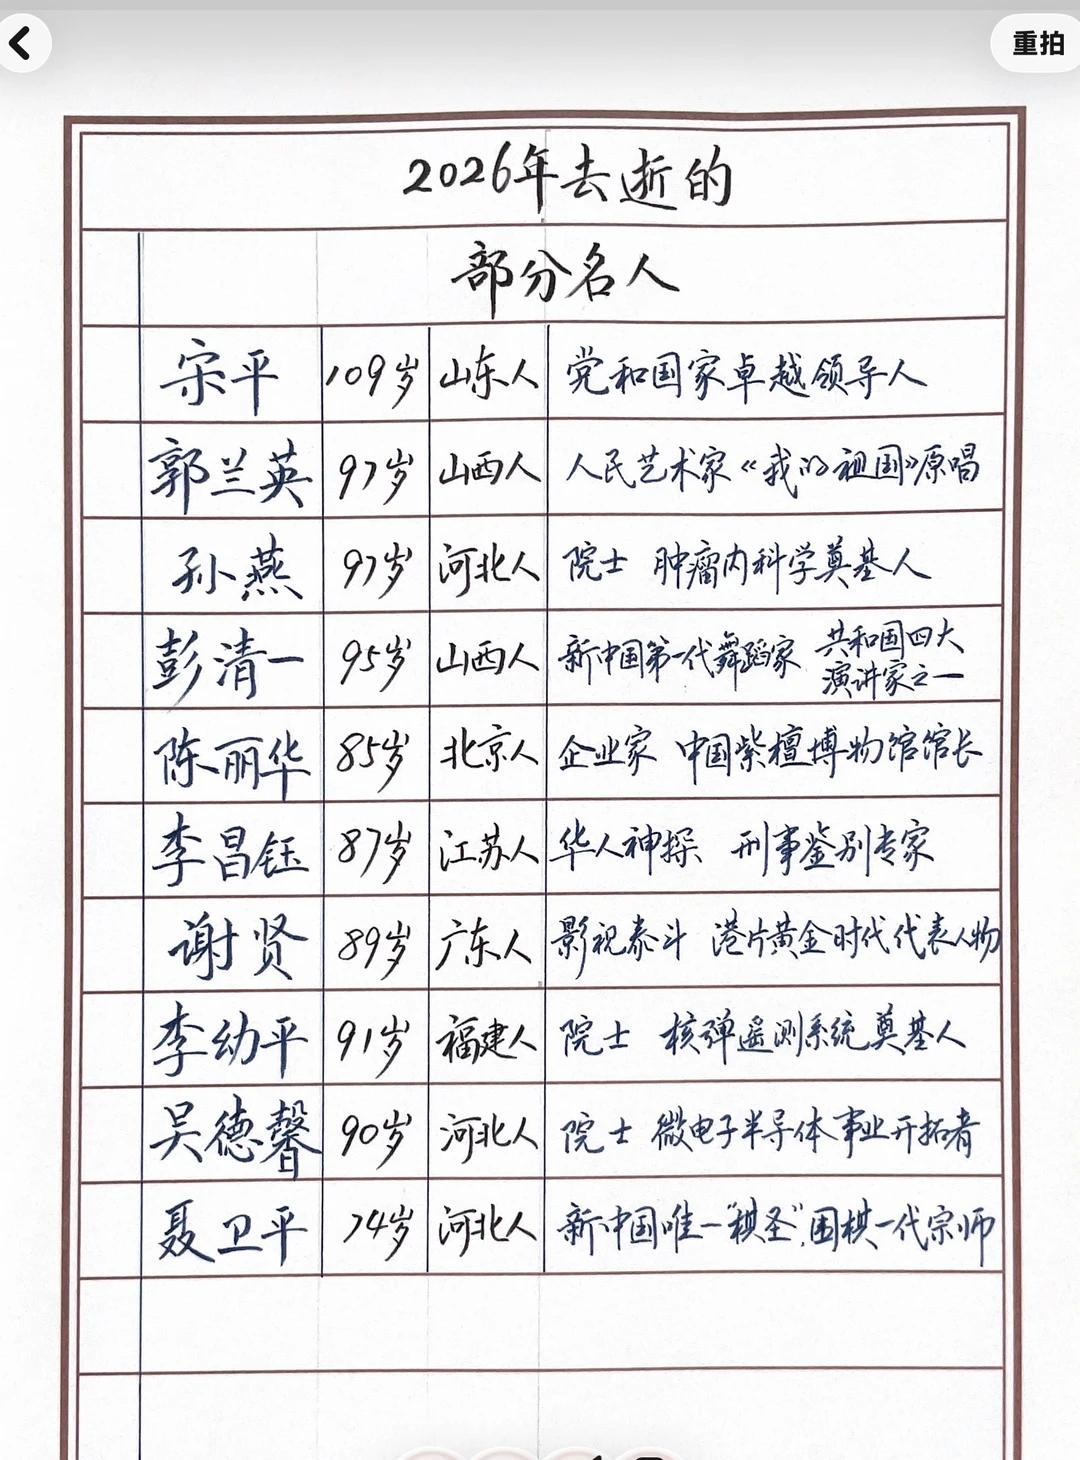 重拍
2026年去逝的
部分名人
宋平 109岁 山东人 党和国家卓越领导人
郭兰英 97岁 山西人 人民艺术家《我的祖国》原唱
孙燕 97岁 河北人 院士 肿瘤内科学奠基人
彭清一 95岁 山西人 新中国第一代舞蹈家 共和国四大
演讲家之一
陈丽华 85岁 北京人 企业家 中国紫檀博物馆馆长
李昌钰 87岁 江苏人 华人神探 刑事鉴别专家
谢贤 89岁 广东人 影视泰斗 港片黄金时代代表人物
李幼平 91岁 福建人 院士 核弹遥测系统奠基人
吴德馨 90岁 河北人 院士 微电子半导体事业开拓者
聂卫平 74岁 河北人 新中国唯一"棋圣",围棋一代宗师